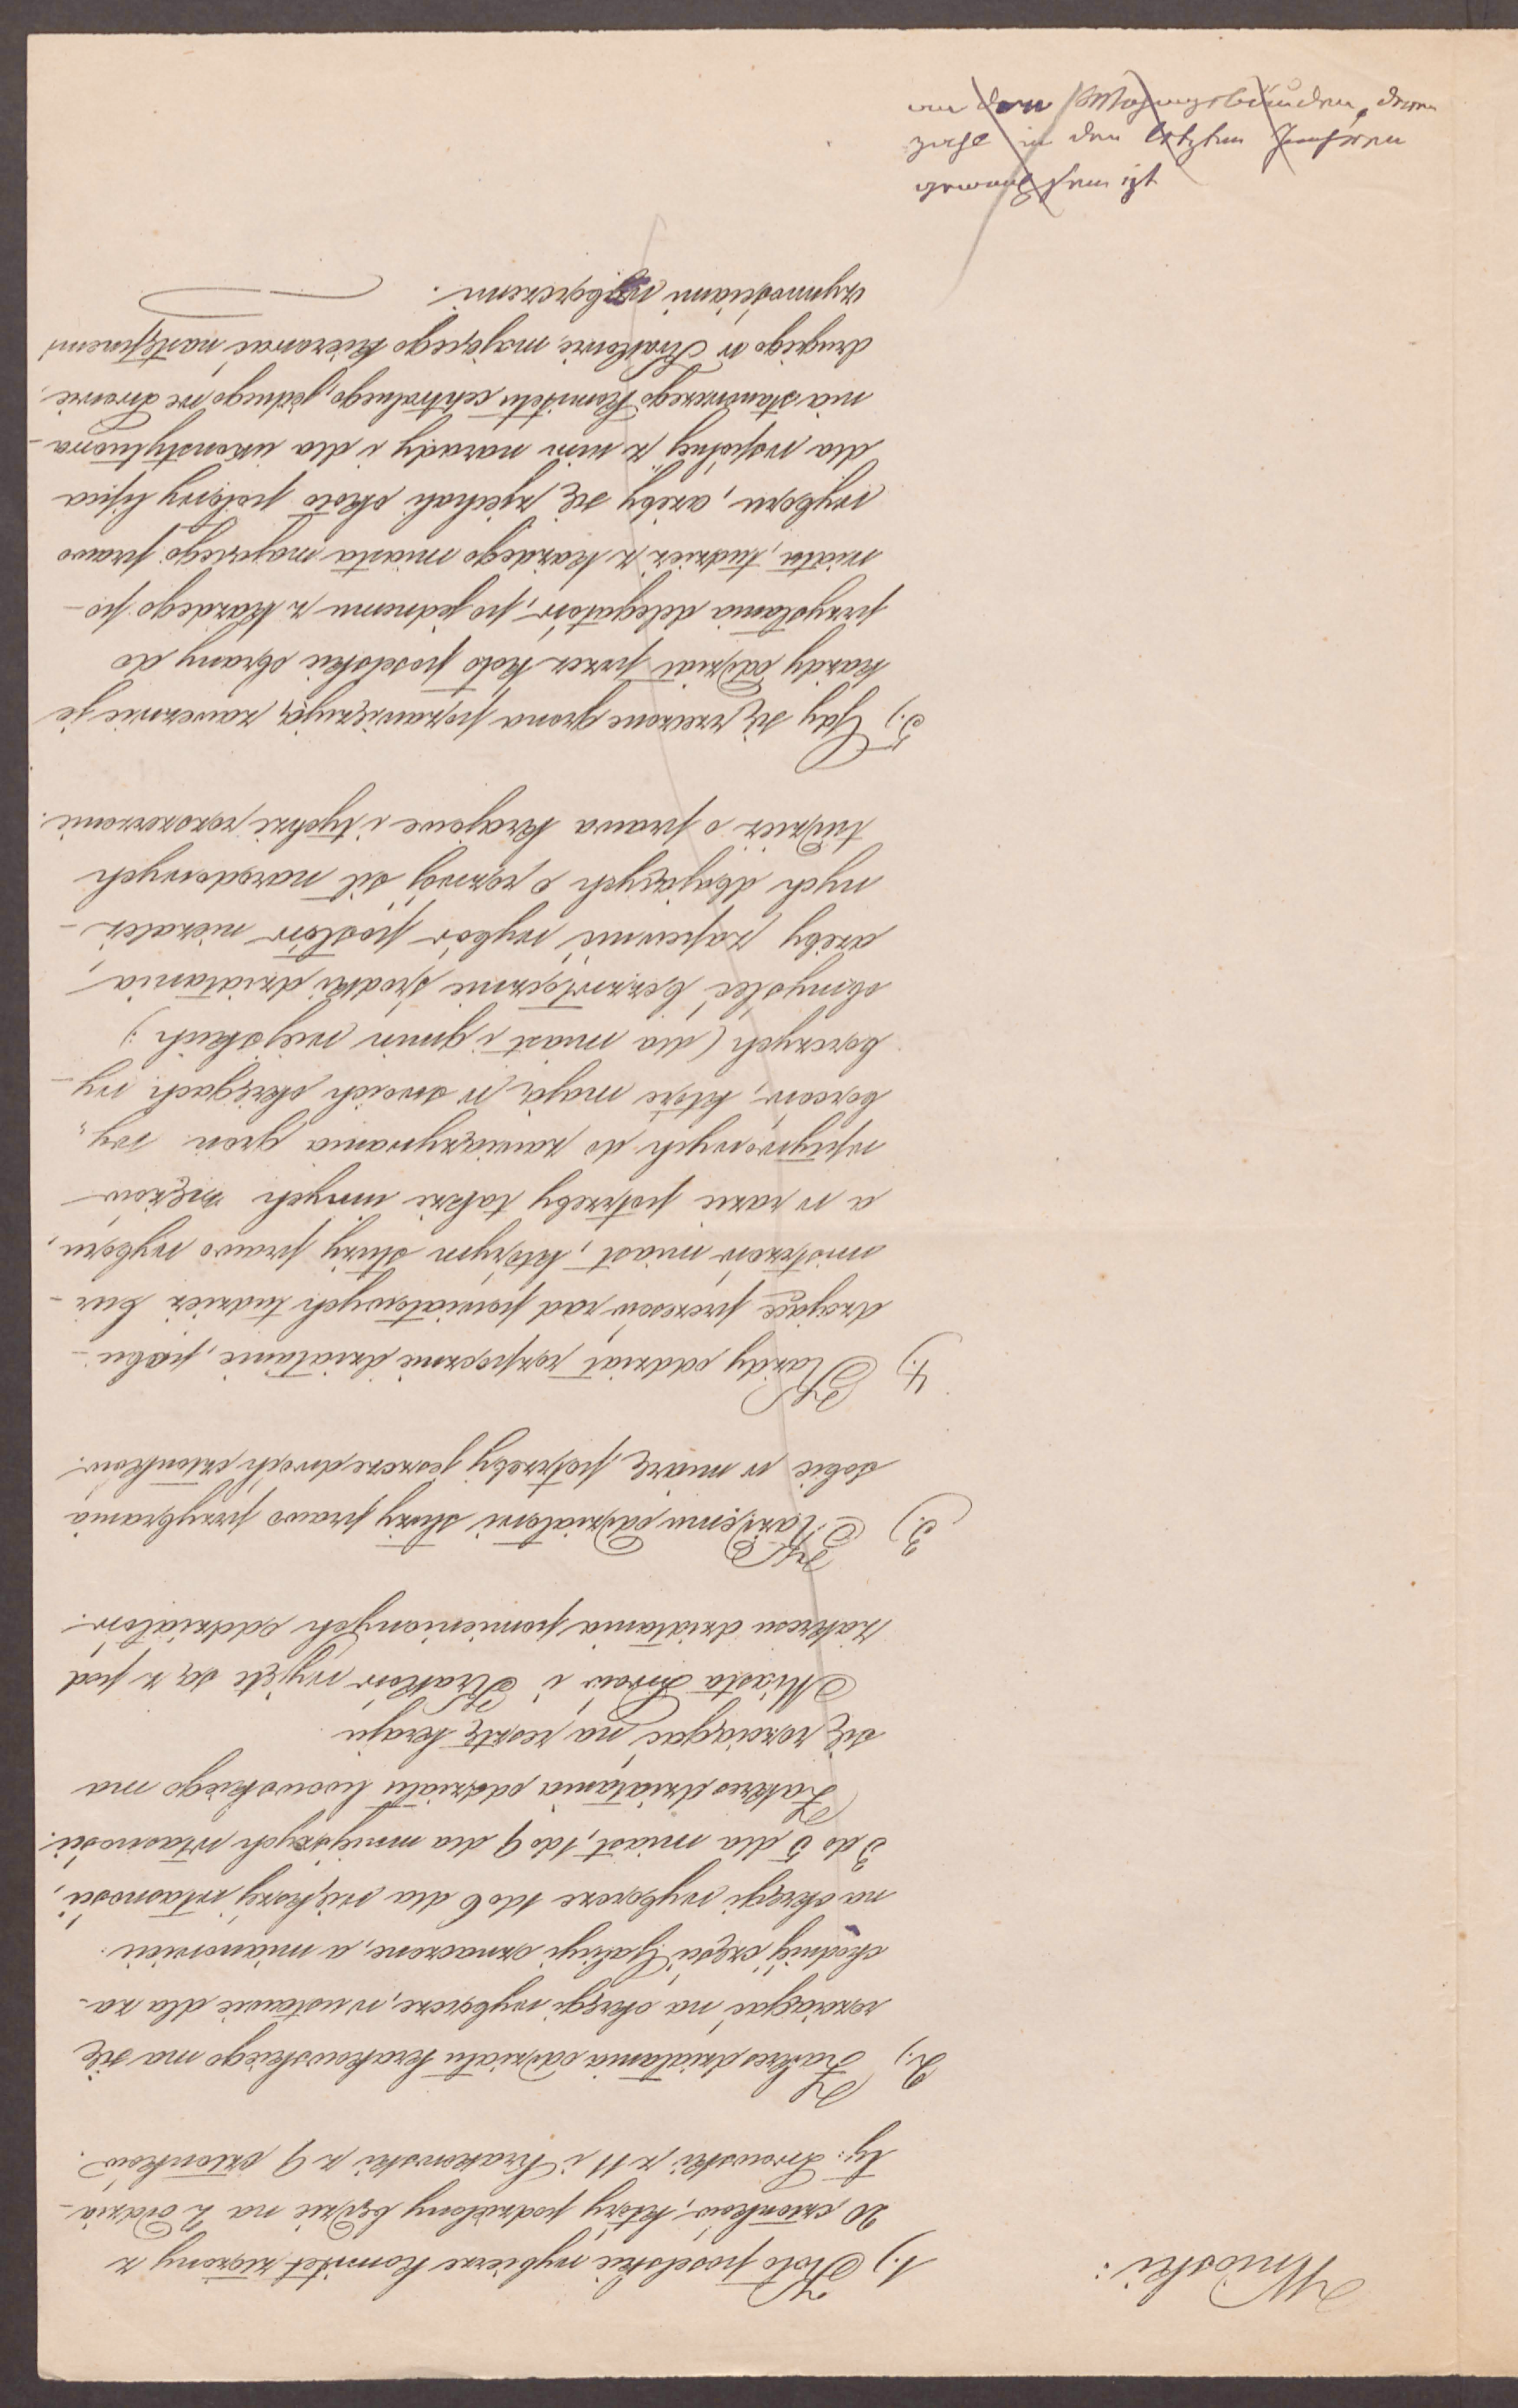 Wnioski:
1.) Koło poselskie wybierze Komitet złożony z
20 członków, który podzielony będzie na 2 oddzia-
ły: Lwowski z 11 i Krakowski z 9 członków.
2.) Zakres działania oddziału krakowskiego ma się
rozciągać na okręgi wyborcze, w ustawie dla za-
chodniej części Galicyi oznaczone, a mianowicie:
na okręgi wyborcze 1 do 6 dla większej własności,
3 do 5 dla miast, 1 do 9 dla mniejszych własności.
Zakres działania oddziału lwowskiego ma
się rozciągać na resztę kraju
Miasta Lwów i Kraków wyjęte są z pod
zakresu działania pomienionych oddziałów.
3.) Każdemu oddziałowi służy prawo przybrania
sobie w miarę potrzeby jeszcze dwóch członków.
4.) Każdy oddział rozpocznie działanie, pobu-
dzając prezesów rad powiatowych tudzież bur-
mistrzów miast, którym służy prawo wyboru,
a w razie potrzeby także innych mężów
wpływowych do zawiązywania gron wy-
borców, które mają w swoich okręgach wy-
borczych (dla miast i gmin wiejskich)
obmyśleć bezzwłocznie środki działania,
ażeby zapewnić wybór posłów niezależ-
nych dbających o rozwój sił narodowych
tudzież o prawa krajowe i tychże rozszerzenie.
5.) Gdy się rzeczone grona pozawiązują zawezwie je
każdy oddział przez koło poselskie obrany do
przysłania delegatów, po jednemu z każdego po-
wiatu, tudzież z każdego miasta mającego prawo
wyboru, ażeby się zjechali około połowy lipca
dla wspólnej z nim narady i dla ukonstytuowa-
nia stanowczego Komitetu centralnego, jednego we Lwowie,
drugiego w Krakowie, mającego kierować następnemi
czynnościami wyborczemi.
den deren
in den letzten
ist